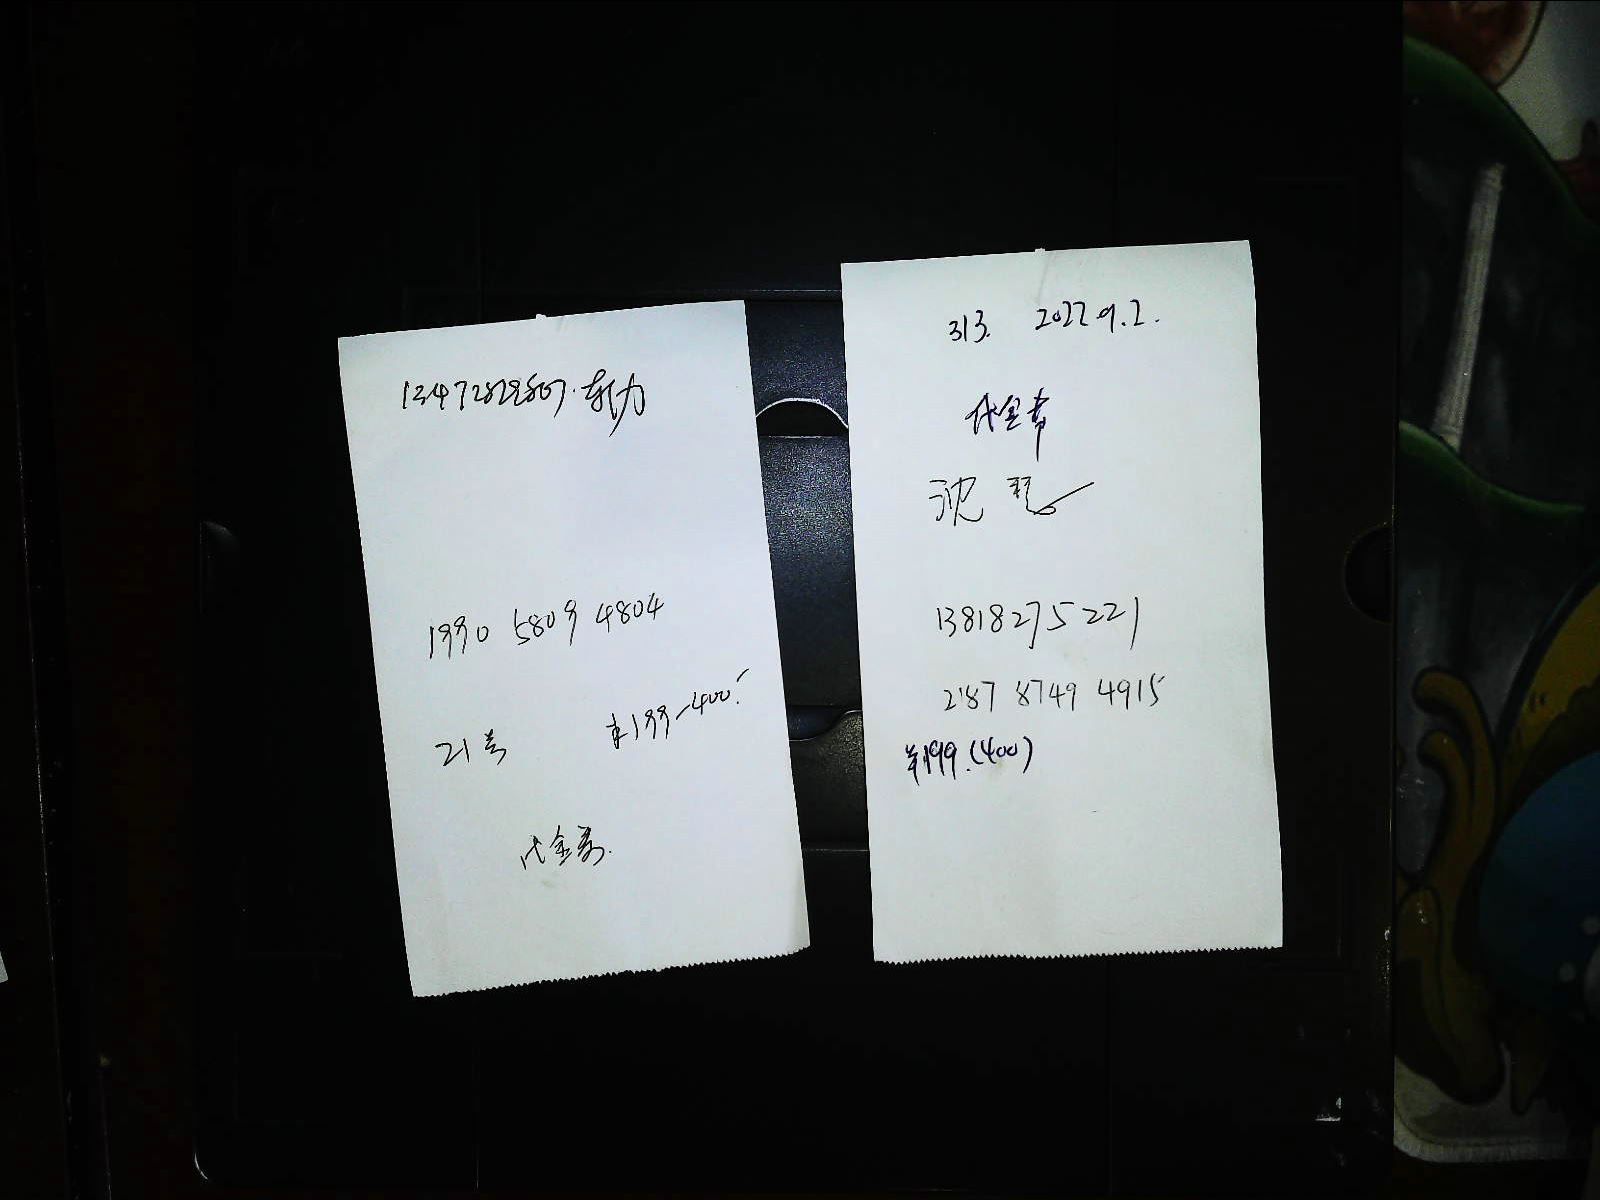 13472829807.
1990 5809 4804
21号 ¥199-400.
代金券.
313. 2022.9.2.
代金券
沈
13818275221
2187 8749 4915
¥199.(400)